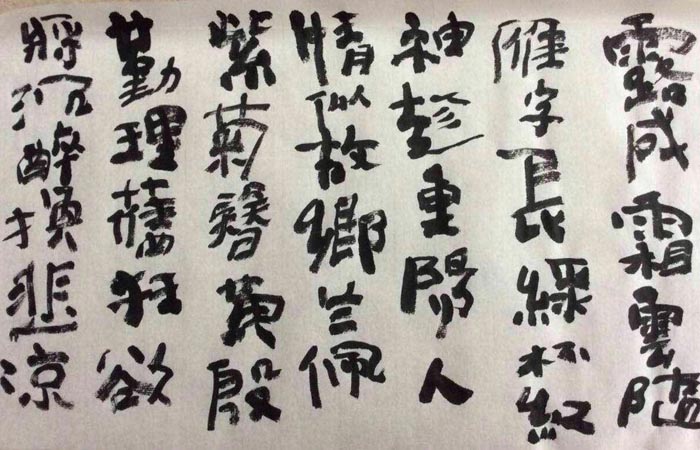 露成霜雲隨
雁字長綠杯紅
袖趁重陽人
情似故鄉兰佩
紫菊簪黄殷
勤理舊狂欲
將沉醉換悲涼